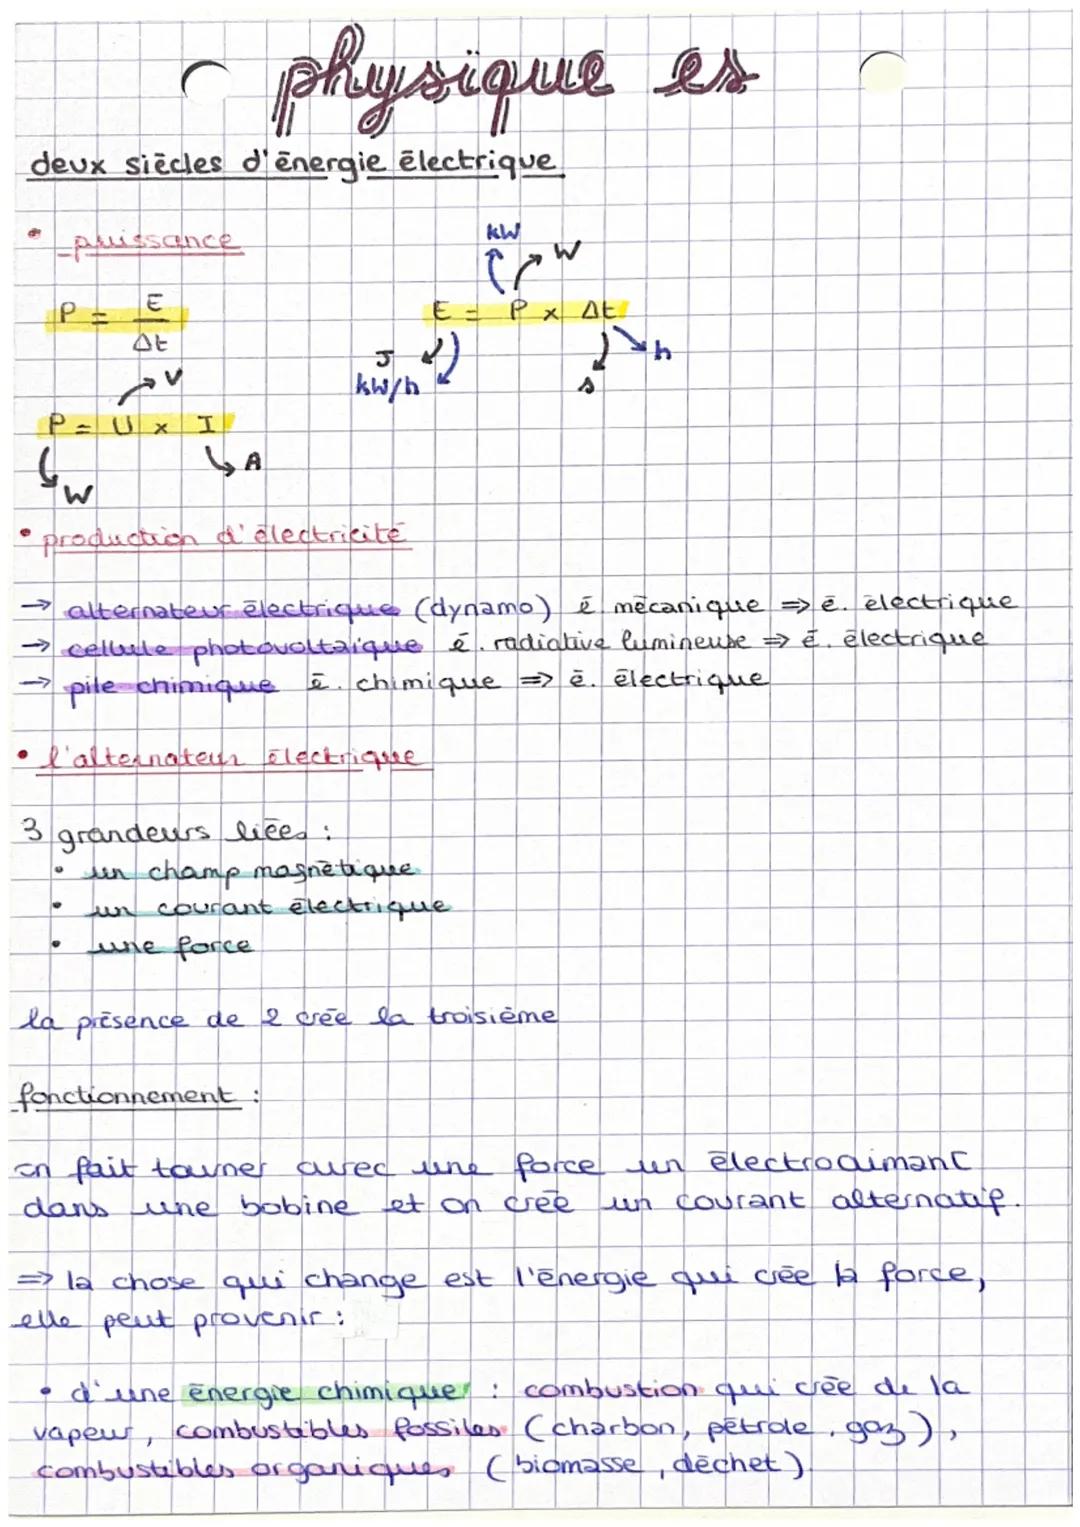 physique es
deux siècles d'énergie électrique
• puissance
kW
W
P = E / Δt
E = P x Δt
J
kW/h
s
h
V
P = U x I
A
W
• production d'électricité
→ alternateur électrique (dynamo) é. mécanique => é. électrique
→ cellule photovoltaïque é. radiative lumineuse => é. électrique
→ pile chimique é. chimique => é. électrique
• l'alternateur électrique
3 grandeurs liées :
• un champ magnétique
• un courant électrique
• une force
la présence de 2 crée la troisième
fonctionnement :
on fait tourner avec une force un électroaimant
dans une bobine et on crée un courant alternatif.
=> la chose qui change est l'énergie qui crée la force,
elle peut provenir :
• d'une énergie chimique : combustion qui crée de la
vapeur, combustibles fossiles (charbon, pétrole, gaz),
combustibles organiques (biomasse, déchet)